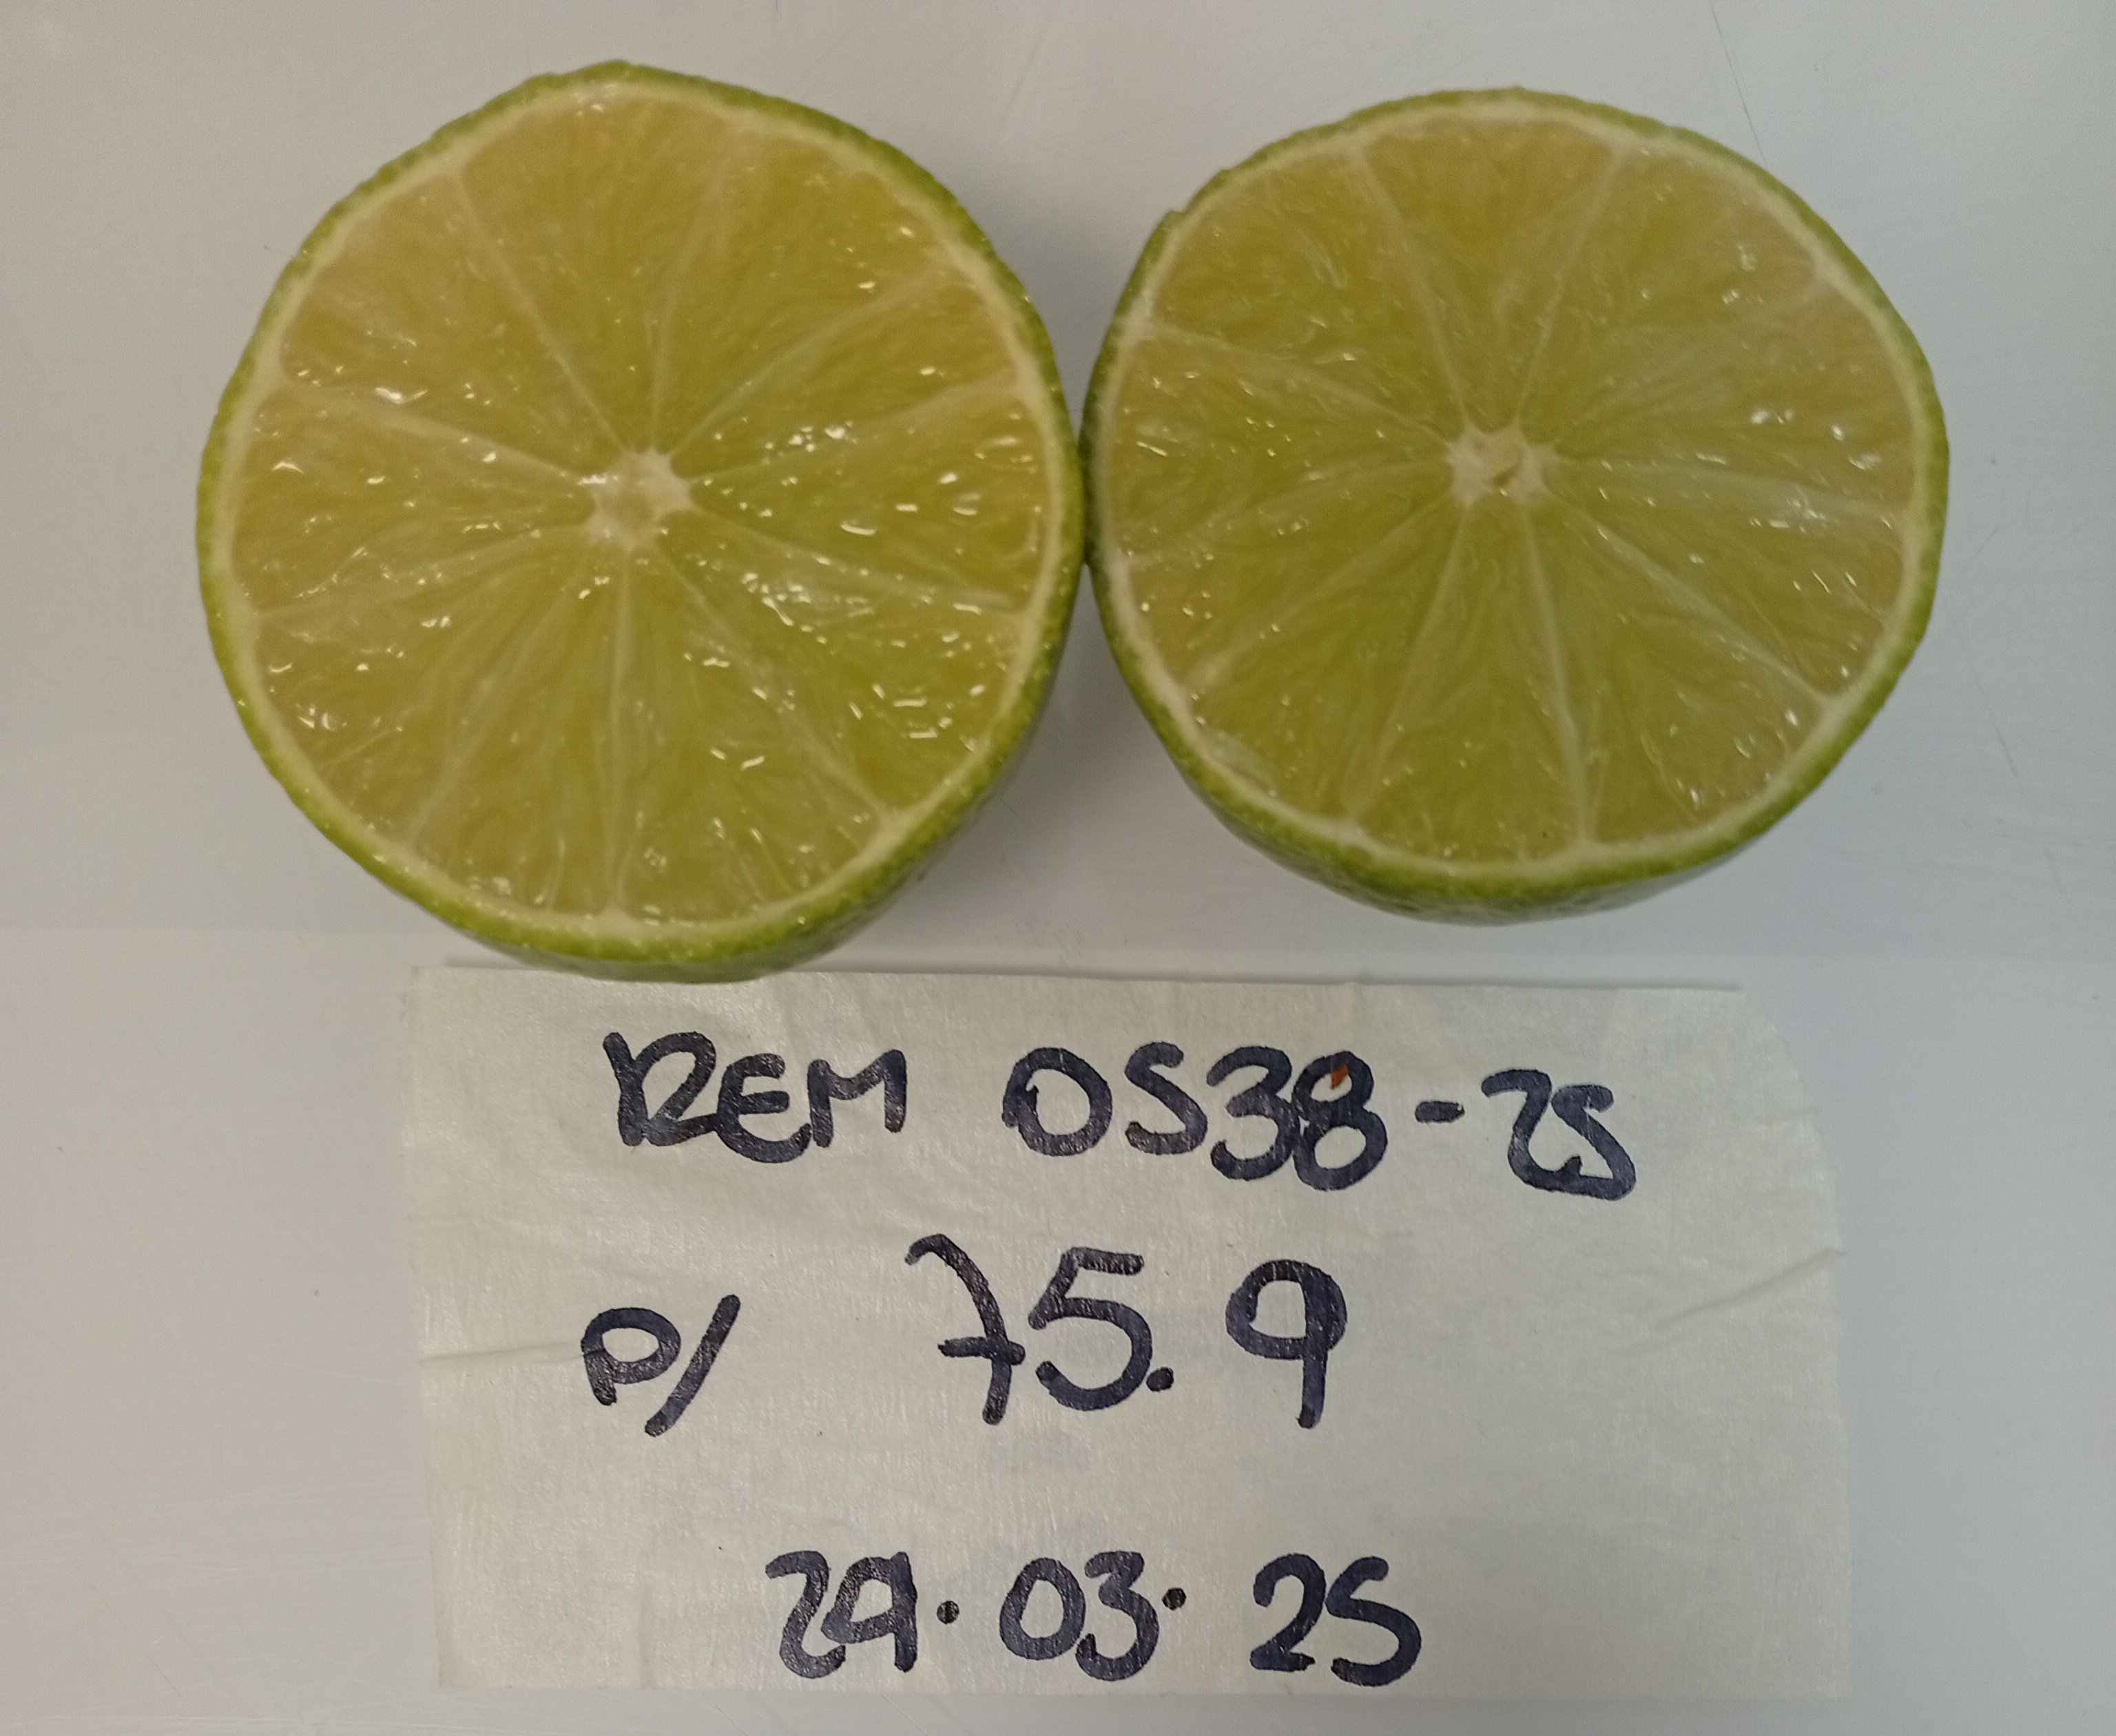 REM 0538-25
P/ 75.9
29.03.25